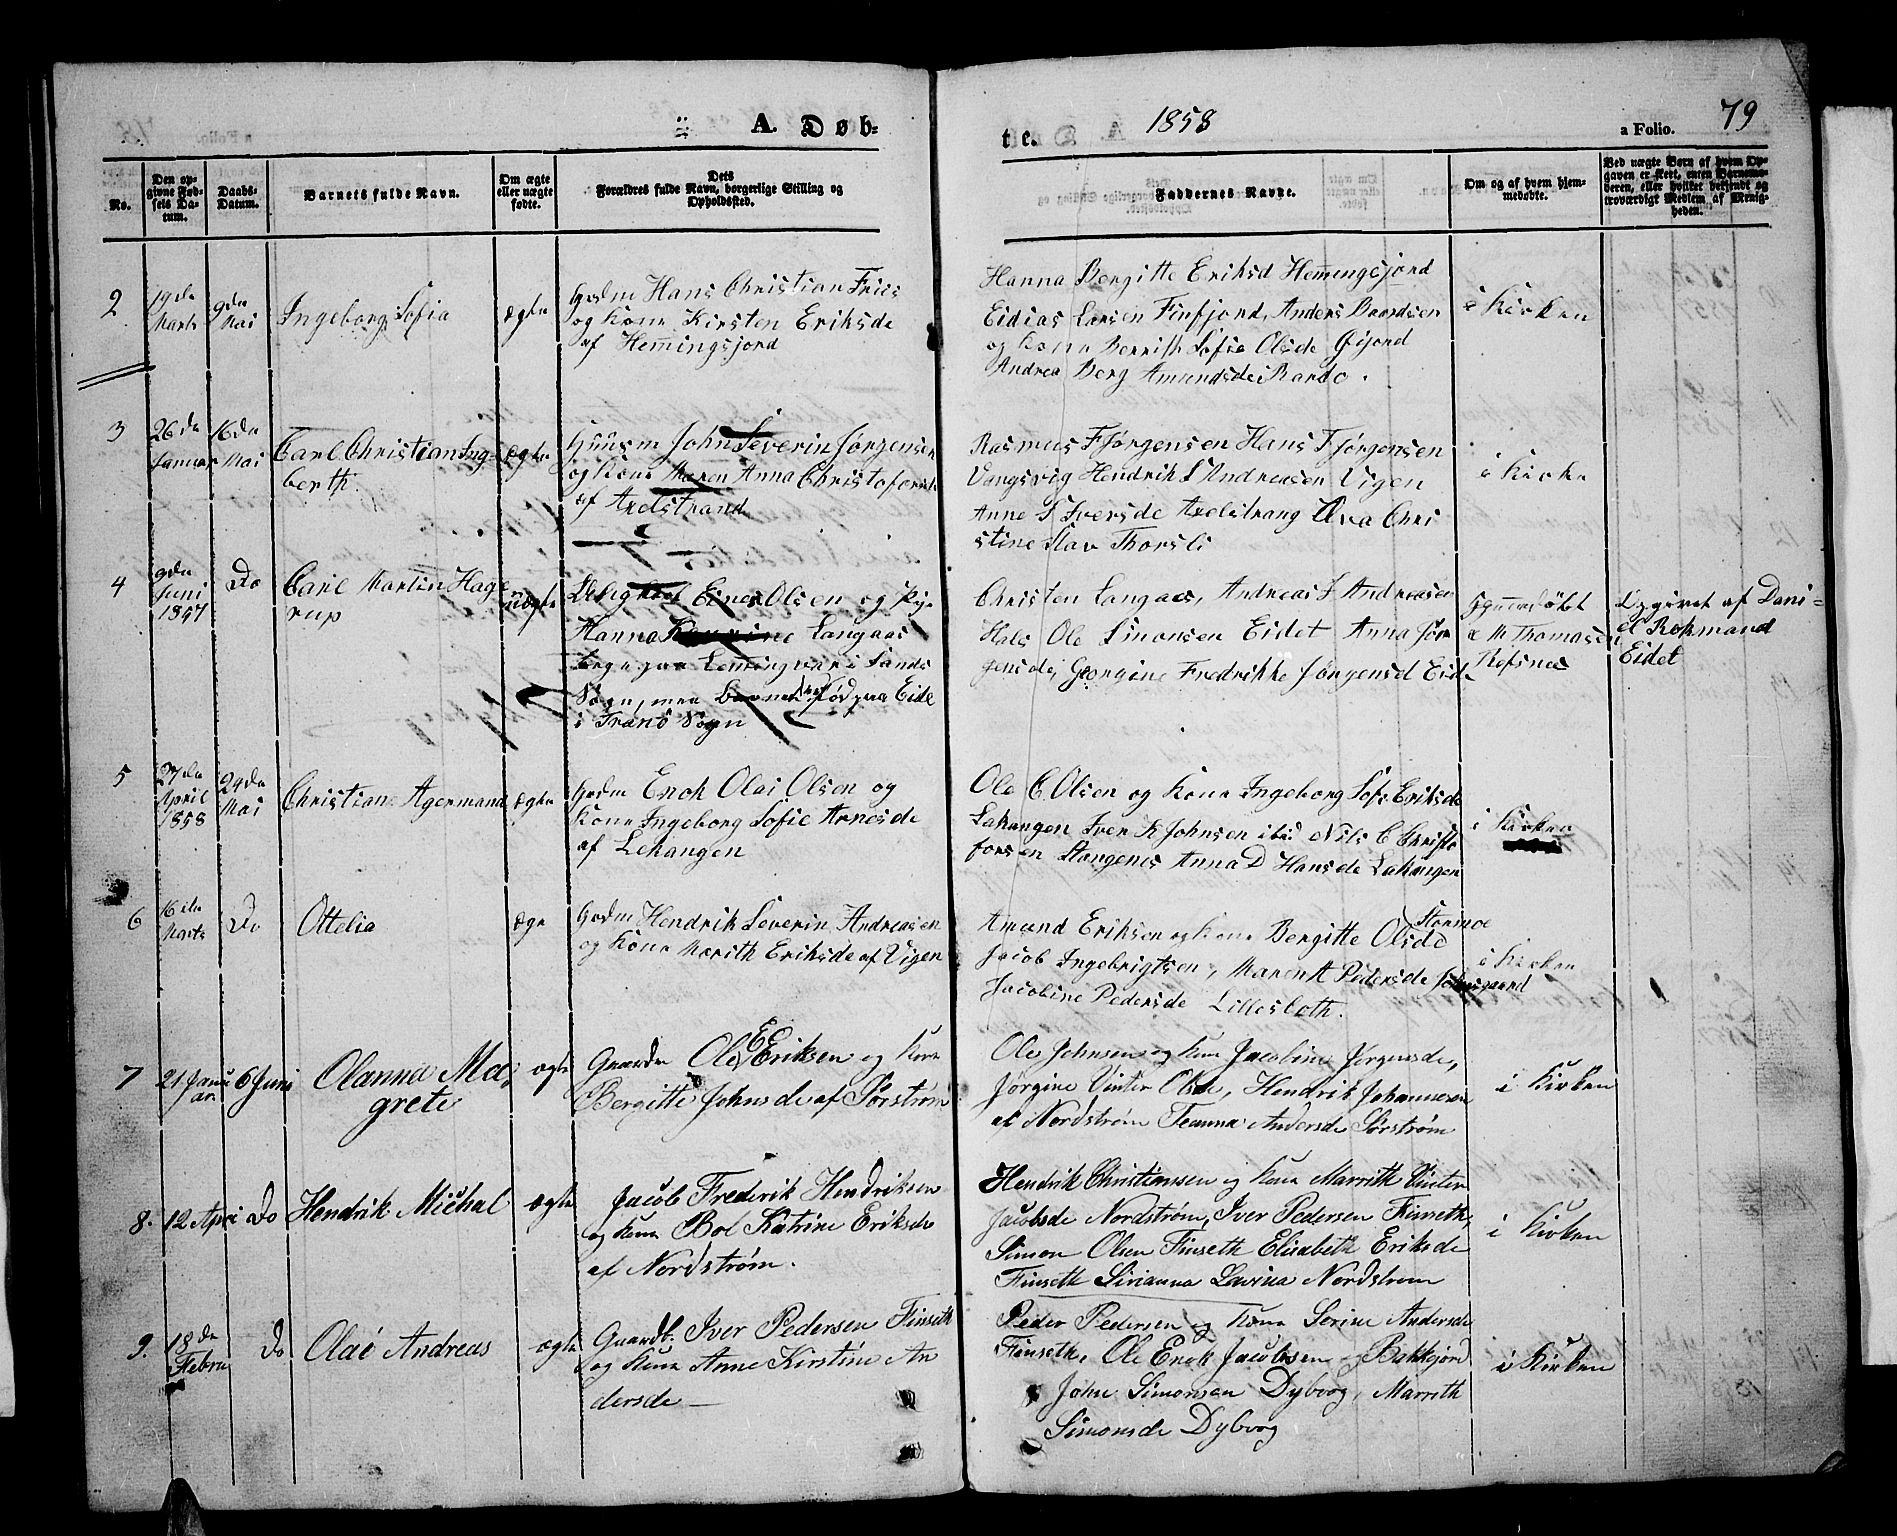 A. Døb-
te.
1858
a Folio.
79
No.
Den op-
givne Fød-
sels Da-
tum.
Daabs-
Datum.
Barnets fulde Navn.
Om ægte
eller uægte
fødte.
Dets
Forældres fulde Navn, borgerlige Stilling og
Opholdssted.
Faddernes Navne.
Om og af hvem hjem-
medøbte.
Ved uægte Børn af hvem Op-
gaven er skeet, enten Barnemo-
deren, eller hvilket bekjendt og
troværdigt Medlem af Menig-
heden.
2
19de
Marts
9de
Mai
Ingeborg Sofia
ægte
Hans Christian Friis
og Kone Kirsten Eriksde
af Hemingsjord
Hanna Bergitte Eriksd Hemingsjord
Eidias Larsen Finfjord, Anders
og Kone Berrith Sofie Olsde Gisjord
Andrea Berg Amundsde
i Kirken
3
26de
Januar
16de
Mai
Carl Christian Ing-
berth
ægte
Huusm John Severin Jørgensen
og Kone Maren Anna Christofersde
af Axelstrand
Rasmus F Jørgensen Hans F Jørgensen
Vangsvig Hendrik S Andreasen Vigen
Anne S Iversde Axelstrang Chri
stine Thorsli
i Kirke
4
9de
Juni
1857
Do
Carl Martin Hage
rup
uægte
Einer Olsen og Pige
Hanna Langaas
i Sands
Sogn, men Barnet født paa Eide
i Tranø Sogn
Christen Langaas, Andreas S Andreasen
Hals Ole Simonsen Eidet Anna Jør
gensde, Georgine Fredrikke Jørgensd Eide
M Thomasen
Refsnes
Opgivet af Dani-
el Rokmand
Eidet
5
27de
April
1858
24de
Mai
Christian Agermand
ægte
Enok Olai Olsen og
Kone Ingeborg Sofie Arnesde
af Lekangen
Ole E Olsen og Kone Ingeborg Sofi Eriksde
Lakangen Iver K Johnsen ibid Nils C Christo
forsen Stangenes Anna D Hansde Lakangen
i Kirken
6
16de
Marts
Do
Ottelia
ægte
Hendrik Severin Andreasen
og Kone Marith Eriksde af Vigen
Stormoe
Amund Eriksen og Kone Bergitte Olsde
Jacob Ingebrigtsen, Maren A Pedersde
Jacobine Pedersde Lillesboth.
i Kirken
7
21 Janu
ar
6 Juni
Olanna Ma,
grete
ægte
Gaardm Ole E Eriksen og Kone
Bergitte Johnsde af Sørstrøm
Ole Johnsen og Kone Jacobine Jørgensde,
Jørgine Vinter Olsde, Hendrik Johannesen
af Nordstrøm Jeanna Andersde Sørstrøm
i Kirken
8.
12 Apri
Do
Hendrik Michal
ægte
Jacob Frederik Hendriksen
og Kone Bol Katrine Eriksde
af Nordstrøm.
Hendrik Christiansen og Kone Marrith Vinter
Jacobsde Nordstrøm, Iver Pedersen Finseth,
Simon Olsen Finseth Elisabeth Eriksde
Finseth Sirianna Lovina Nordstrøm
i Kirken
9.
18de
Febru
Do
Olai Andreas
ægte
Gaardb. Iver Pedersen Finseth
og Kone Anne Kirstine An
dersde —
Peder Pedersen og Kone Serine Andersde
Finseth, Ole Enok Jacobsen Bakkejord
John Simonsen Dyborg, Marrith
Simonsde Dyborg
i Kirken